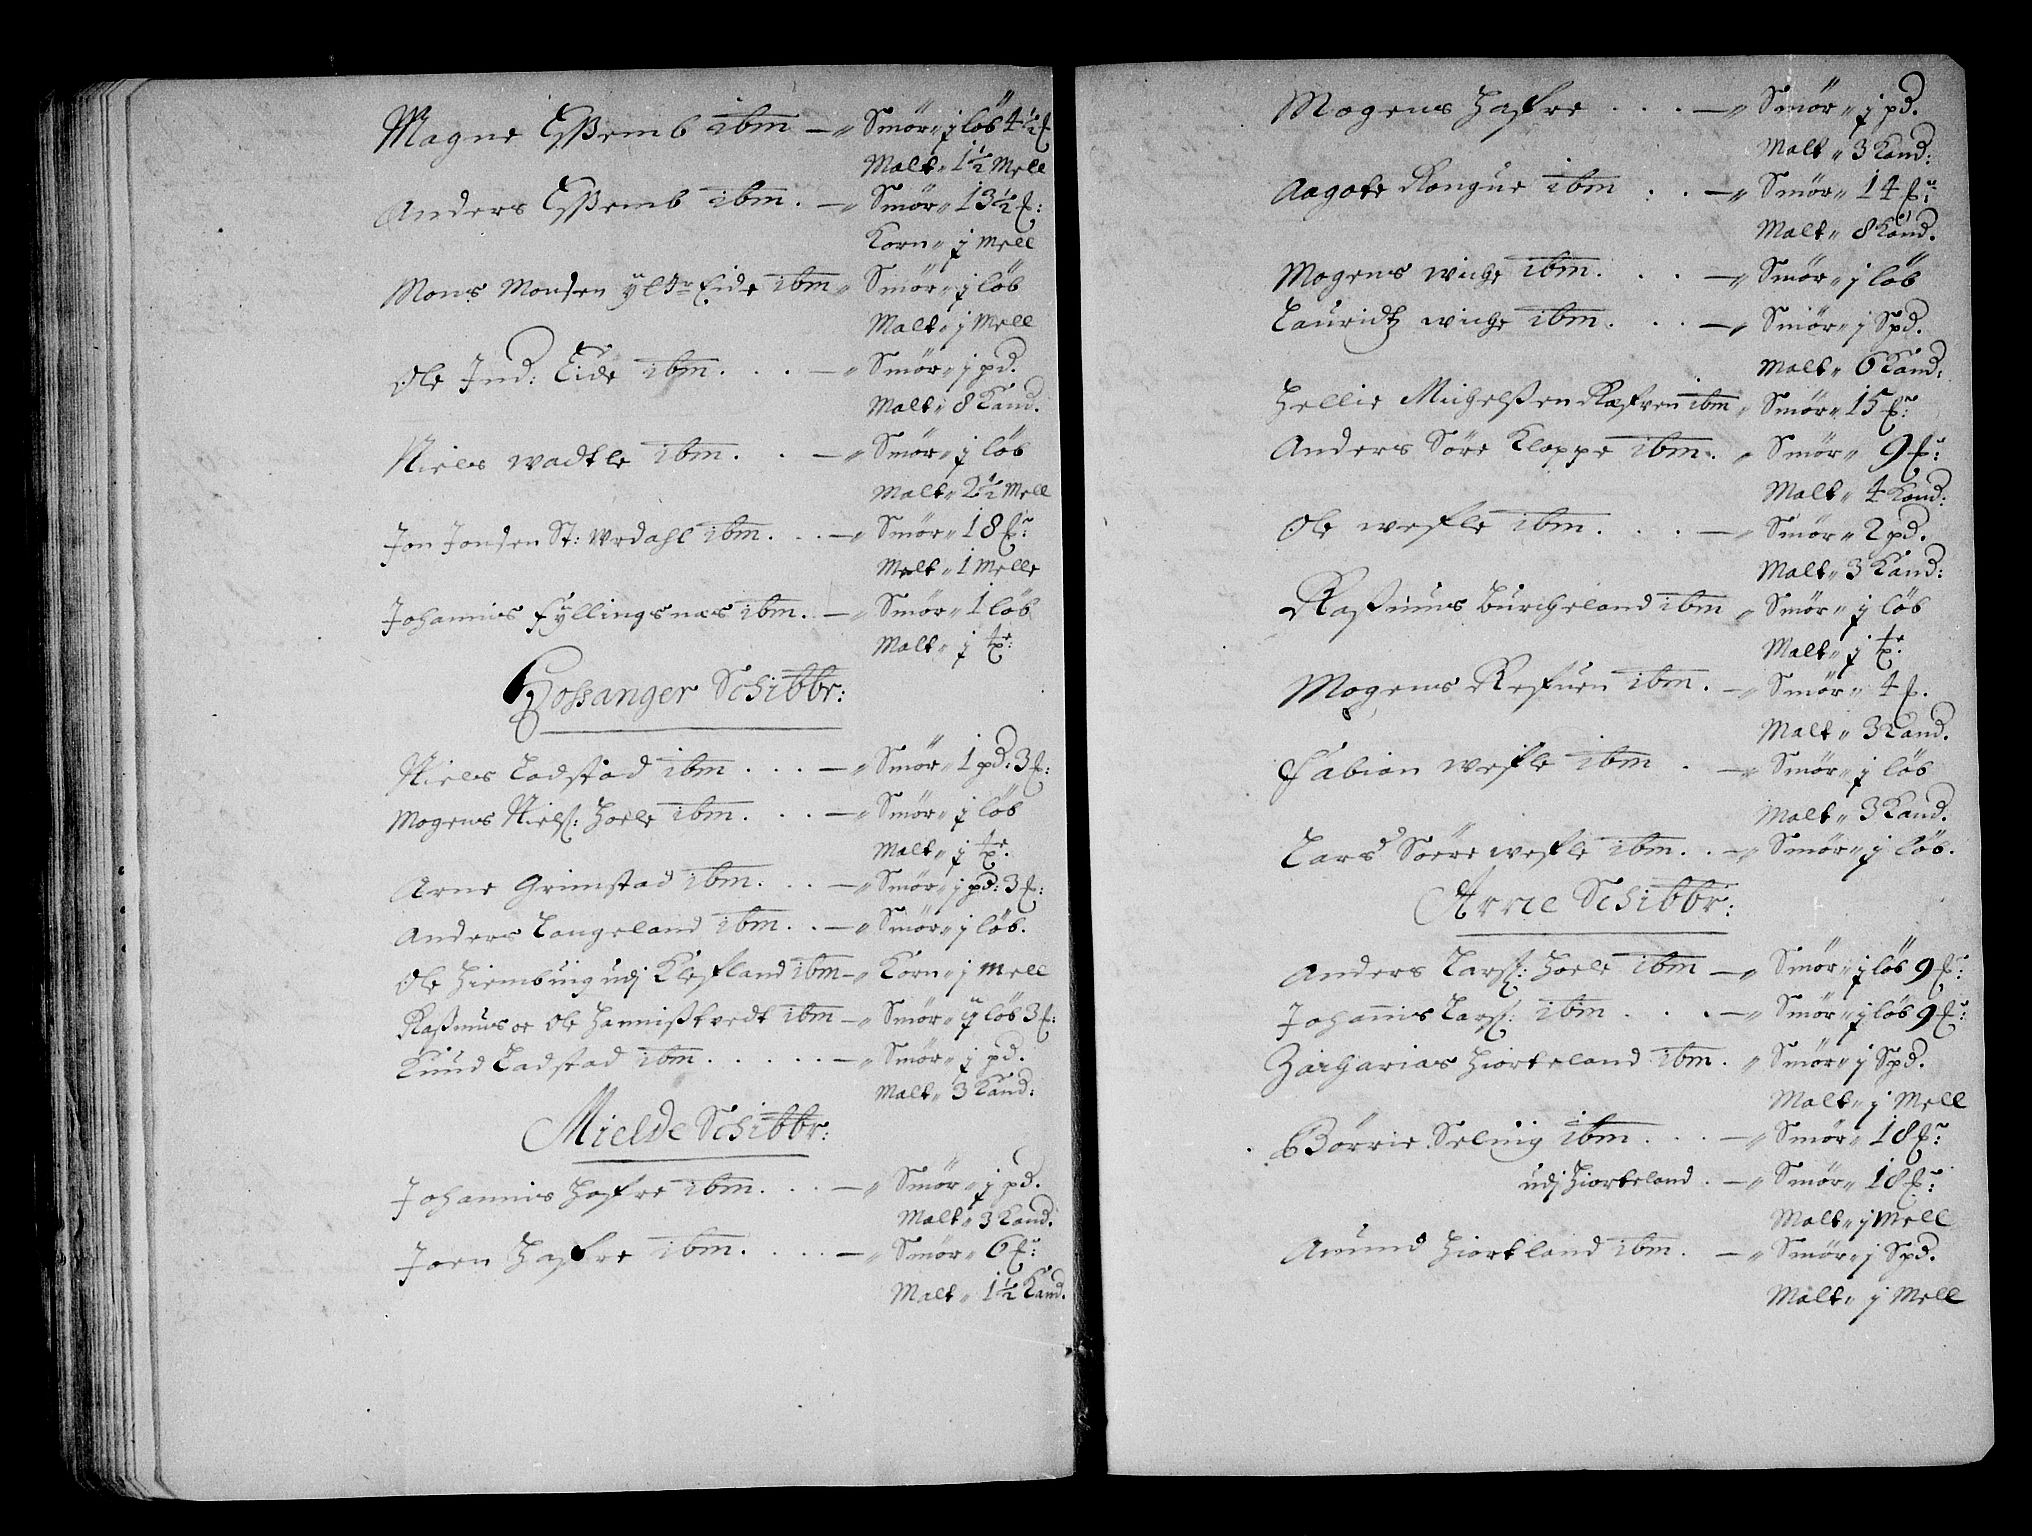 Magne Eßemb ibm — „ Smör „ j löb 4½ ℔
Malt „ 1½ Mell
Anders Eßemb ibm. — „ Smör „ 13½ ℔:
Korn „ j Mell
Mons Monsen yldr Eide ibm „ Smör „ j löb
Malt „ j Mell
Ole Ind: Eide ibm. . . — „ Smör „ j pd.
Malt „ 8 Kand.
Niels Wadtle ibm. . — „ Smör „ j löb
Malt „ 2½ Mell
Jon Jonsen St: Urdahl ibm. . . — „ Smör „ 18 ℔:
Malt „ 1 Melle
Johannis Fyllingsnæs ibm. — „ Smör „ 1 löb
Malt „ j tr:
Hossanger Schibbr:
Niels Ladstad ibm . . . — „ Smör „ 1 pd: 3 ℔:
Mogens Nielß: Hole ibm. . . — „ Smör „ j löb
Malt „ j tr.
Arne Grimstad ibm. . . — „ Smör „ j pd: 3 ℔:
Anders Langeland ibm. . — „ Smör „ j löb.
Ole Hiembuig udj Klefland ibm — „ Korn „ j Mell
Raßmus oc Ole Hannißtvedt ibm — „ Smör „ ij löb 3 ℔:
Knud Ladstad ibm . . . . . — „ Smör „ j pd.
Malt „ 3 Kand:
Mielde Schibbr:
Johannis Hafre ibm. . . — „ Smör „ j pd.
Malt „ 3 Kand.
Joen Hafre ibm. . . . — „ Smör „ 6 ℔:
Malt „ 1½ Kand.
Mogens Hafre . . . — „ Smör „ j pd.
Malt „ 3 Kand:
Aagote Rongue ibm . . — „ Smör „ 14 ℔:
Malt „ 8 Kand.
Mogens Wiche ibm. . . — „ Smör „ j löb
Lauridtz Wiche ibm. . . — „ Smör „ j Spd.
Malt „ 6 Kand:
Hellie Michelßen Refven ibm „ Smör „ 15 ℔:
Anders Söre Kloppe ibm. „ Smör „ 9 ℔:
Malt „ 4 Kand:
Ole Wefle ibm. . . — „ Smör „ 2 pd.
Malt „ 3 Kand:
Raßmus Burcheland ibm „ Smör „ j löb
Malt „ j tr.
Mogens Refuen ibm. — „ Smör „ 4 ℔.
Malt „ 3 Kand.
Fabian Wefle ibm . — „ Smör „ j löb
Malt „ 3 Kand.
Lars Söere Wefle ibm. . — „ Smör „ j löb.
Arne Schibbr:
Anders Larß: Hole ibm — „ Smör „ j löb 9 ℔:
Johannis Larß: ibm . . . — „ Smör „ j löb 9 ℔:
Zacharias Hiorteland ibm. „ Smör „ j Spd.
Malt „ j Mell
Börrie Selvig ibm . . . — „ Smör „ 18 ℔:
udj Hiorteland . — „ Smör „ 18 ℔:
Malt „ j Mell
Amund Hiortland ibm. — „ Smör „ j Spd.
Malt „ j Mell